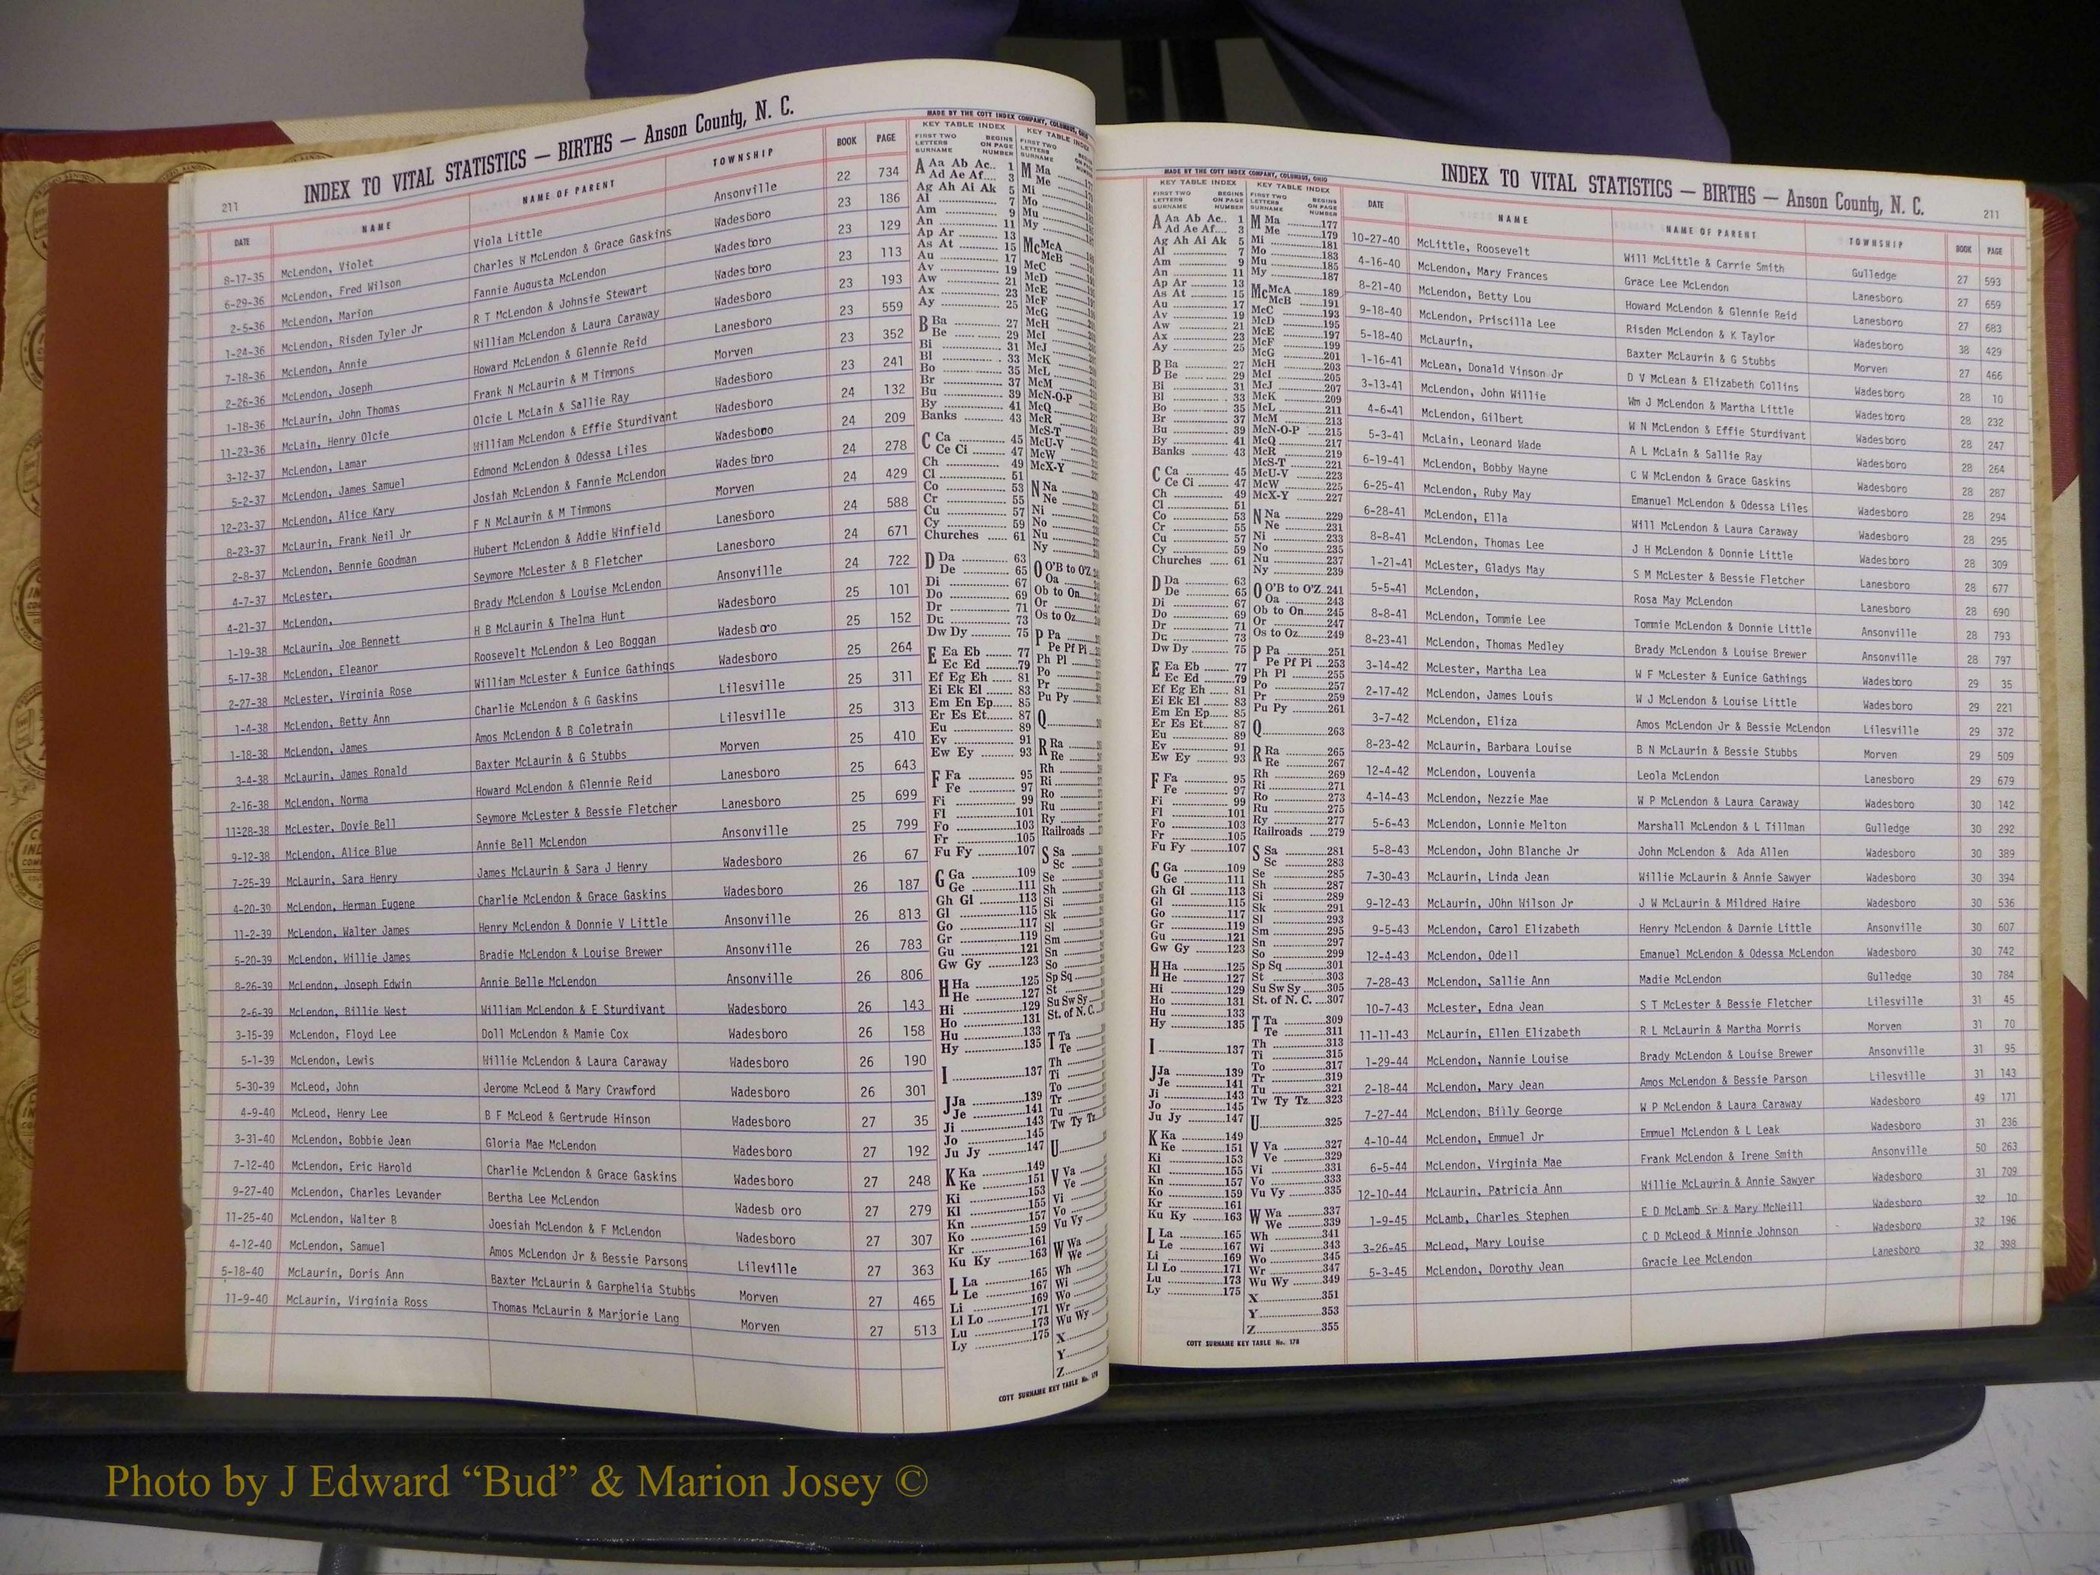 211
INDEX TO VITAL STATISTICS — BIRTHS — Anson County, N. C.
DATE NAME NAME OF PARENT TOWNSHIP BOOK PAGE
8-17-35 McLendon, Violet Viola Little Ansonville 22 734
6-29-36 McLendon, Fred Wilson Charles W McLendon & Grace Gaskins Wadesboro 23 186
2-5-36 McLendon, Marion Fannie Augusta McLendon Wadesboro 23 129
1-24-36 McLendon, Risden Tyler Jr R T McLendon & Johnsie Stewart Wadesboro 23 113
7-18-36 McLendon, Annie William McLendon & Laura Caraway Wadesboro 23 193
2-26-36 McLendon, Joseph Howard McLendon & Glennie Reid Lanesboro 23 559
1-18-36 McLaurin, John Thomas Frank N McLaurin & M Timmons Morven 23 352
11-23-36 McLain, Henry Olcie Olcie L McLain & Sallie Ray Wadesboro 23 241
3-12-37 McLendon, Lamar William McLendon & Effie Sturdivant Wadesboro 24 132
5-2-37 McLendon, James Samuel Edmond McLendon & Odessa Liles Wadesboro 24 209
12-23-37 McLendon, Alice Kary Josiah McLendon & Fannie McLendon Wadesboro 24 278
8-23-37 McLaurin, Frank Neil Jr F N McLaurin & M Timmons Morven 24 429
2-8-37 McLendon, Bennie Goodman Hubert McLendon & Addie Winfield Lanesboro 24 588
4-7-37 McLester, Seymore McLester & B Fletcher Lanesboro 24 671
4-21-37 McLendon, Brady McLendon & Louise McLendon Ansonville 24 722
1-19-38 McLaurin, Joe Bennett H B McLaurin & Thelma Hunt Wadesboro 25 101
5-17-38 McLendon, Eleanor Roosevelt McLendon & Leo Boggan Wadesboro 25 152
2-27-38 McLester, Virginia Rose William McLester & Eunice Gathings Wadesboro 25 264
1-4-38 McLendon, Betty Ann Charlie McLendon & G Gaskins Lilesville 25 311
1-18-38 McLendon, James Amos McLendon & B Coletrain Lilesville 25 313
3-4-38 McLaurin, James Ronald Baxter McLaurin & G Stubbs Morven 25 410
2-16-38 McLendon, Norma Howard McLendon & Glennie Reid Lanesboro 25 643
11-28-38 McLester, Dovie Bell Seymore McLester & Bessie Fletcher Lanesboro 25 699
9-12-38 McLendon, Alice Blue Annie Bell McLendon Ansonville 25 799
7-25-39 McLaurin, Sara Henry James McLaurin & Sara J Henry Wadesboro 26 67
4-20-39 McLendon, Herman Eugene Charlie McLendon & Grace Gaskins Wadesboro 26 187
11-2-39 McLendon, Walter James Henry McLendon & Donnie V Little Ansonville 26 813
5-20-39 McLendon, Willie James Bradie McLendon & Louise Brewer Ansonville 26 783
8-26-39 McLendon, Joseph Edwin Annie Belle McLendon Ansonville 26 806
2-6-39 McLendon, Billie West William McLendon & E Sturdivant Wadesboro 26 143
3-15-39 McLendon, Floyd Lee Doll McLendon & Mamie Cox Wadesboro 26 158
5-1-39 McLendon, Lewis Willie McLendon & Laura Caraway Wadesboro 26 190
5-30-39 McLeod, John Jerome McLeod & Mary Crawford Wadesboro 26 301
4-9-40 McLeod, Henry Lee B F McLeod & Gertrude Hinson Wadesboro 27 35
3-31-40 McLendon, Bobbie Jean Gloria Mae McLendon Wadesboro 27 192
7-12-40 McLendon, Eric Harold Charlie McLendon & Grace Gaskins Wadesboro 27 248
9-27-40 McLendon, Charles Levander Bertha Lee McLendon Wadesb oro 27 279
11-25-40 McLendon, Walter B Joesiah McLendon & F McLendon Wadesboro 27 307
4-12-40 McLendon, Samuel Amos McLendon Jr & Bessie Parsons Lileville 27 363
5-18-40 McLaurin, Doris Ann Baxter McLaurin & Garphelia Stubbs Morven 27 465
11-9-40 McLaurin, Virginia Ross Thomas McLaurin & Marjorie Lang Morven 27 513
MADE BY THE COTT INDEX COMPANY, COLUMBUS, OHIO
KEY TABLE INDEX KEY TABLE INDEX
FIRST TWO LETTERS SURNAME BEGINS ON PAGE NUMBER
COTT SURNAME KEY TABLE No. 178
MADE BY THE COTT INDEX COMPANY, COLUMBUS, OHIO
KEY TABLE INDEX KEY TABLE INDEX
FIRST TWO LETTERS SURNAME BEGINS ON PAGE NUMBER
A Aa Ab Ac.. 1
Ad Ae Af.... 3
Ag Ah Ai Ak 5
Al 7
Am 9
An 11
Ap Ar 13
As At 15
Au 17
Av 19
Aw 21
Ax 23
Ay 25
B Ba 27
Be 29
Bi 31
Bl 33
Bo 35
Br 37
Bu 39
By 41
Banks 43
C Ca 45
Ce Ci 47
Ch 49
Cl 51
Co 53
Cr 55
Cu 57
Cy 59
Churches 61
D Da 63
De 65
Di 67
Do 69
Dr 71
Du 73
Dw Dy 75
E Ea Eb 77
Ec Ed 79
Ef Eg Eh 81
Ei Ek El 83
Em En Ep 85
Er Es Et 87
Eu 89
Ev 91
Ew Ey 93
F Fa 95
Fe 97
Fi 99
Fl 101
Fo 103
Fr 105
Fu Fy 107
G Ga 109
Ge 111
Gh Gi 113
Gl 115
Go 117
Gr 119
Gu 121
Gw Gy 123
H Ha 125
He 127
Hi 129
Ho 131
Hu 133
Hy 135
I 137
J Ja 139
Je 141
Ji 143
Jo 145
Ju Jy 147
K Ka 149
Ke 151
Ki 153
Kl 155
Kn 157
Ko 159
Kr 161
Ku Ky 163
L La 165
Le 167
Li 169
Ll Lo 171
Lu 173
Ly 175
M Ma 177
Me 179
Mi 181
Mo 183
Mu 185
My 187
Mc McA 189
McB 191
McC 193
McD 195
McE 197
McF 199
McG 201
McH 203
McI 205
McJ 207
McK 209
McL 211
McM 213
McN-O-P 215
McQ 217
McR 219
McS-T 221
McU-V 223
McW 225
McX-Y 227
N Na 229
Ne 231
Ni 233
No 235
Nu 237
Ny 239
O O'B to O'Z 241
Oa 243
Ob to On 245
Or 247
Os to Oz 249
P Pa 251
Pe Pf Pi 253
Ph Pl 255
Po 257
Pr 259
Pu Py 261
Q 263
R Ra 265
Re 267
Rh 269
Ri 271
Ro 273
Ru 275
Ry 277
Railroads 279
S Sa 281
Sc 283
Se 285
Sh 287
Si 289
Sk 291
Sl 293
Sm 295
Sn 297
So 299
Sp Sq 301
St 303
Su Sw Sy 305
St. of N. C. 307
T Ta 309
Te 311
Th 313
Ti 315
To 317
Tr 319
Tu 321
Tw Ty Tz 323
U 325
V Va 327
Ve 329
Vi 331
Vo 333
Vu Vy 335
W Wa 337
We 339
Wh 341
Wi 343
Wo 345
Wr 347
Wu Wy 349
X 351
Y 353
Z 355
COTT SURNAME KEY TABLE No. 178
INDEX TO VITAL STATISTICS — BIRTHS — Anson County, N. C.
211
DATE NAME NAME OF PARENT TOWNSHIP BOOK PAGE
10-27-40 McLittle, Roosevelt Will McLittle & Carrie Smith Gulledge 27 593
4-16-40 McLendon, Mary Frances Grace Lee McLendon Lanesboro 27 659
8-21-40 McLendon, Betty Lou Howard McLendon & Glennie Reid Lanesboro 27 683
9-18-40 McLendon, Priscilla Lee Risden McLendon & K Taylor Wadesboro 38 429
5-18-40 McLaurin, Baxter McLaurin & G Stubbs Morven 27 466
1-16-41 McLean, Donald Vinson Jr D V McLean & Elizabeth Collins Wadesboro 28 10
3-13-41 McLendon, John Willie Wm J McLendon & Martha Little Wadesboro 28 232
4-6-41 McLendon, Gilbert W N McLendon & Effie Sturdivant Wadesboro 28 247
5-3-41 McLain, Leonard Wade A L McLain & Sallie Ray Wadesboro 28 264
6-19-41 McLendon, Bobby Wayne C W McLendon & Grace Gaskins Wadesboro 28 287
6-25-41 McLendon, Ruby May Emanuel McLendon & Odessa Liles Wadesboro 28 294
6-28-41 McLendon, Ella Will McLendon & Laura Caraway Wadesboro 28 295
8-8-41 McLendon, Thomas Lee J H McLendon & Donnie Little Wadesboro 28 309
1-21-41 McLester, Gladys May S M McLester & Bessie Fletcher Lanesboro 28 677
5-5-41 McLendon, Rosa May McLendon Lanesboro 28 690
8-8-41 McLendon, Tommie Lee Tommie McLendon & Donnie Little Ansonville 28 793
8-23-41 McLendon, Thomas Medley Brady McLendon & Louise Brewer Ansonville 28 797
3-14-42 McLester, Martha Lea W F McLester & Eunice Gathings Wadesboro 29 35
2-17-42 McLendon, James Louis W J McLendon & Louise Little Wadesboro 29 221
3-7-42 McLendon, Eliza Amos McLendon Jr & Bessie McLendon Lilesville 29 372
8-23-42 McLaurin, Barbara Louise B N McLaurin & Bessie Stubbs Morven 29 509
12-4-42 McLendon, Louvenia Leola McLendon Lanesboro 29 679
4-14-43 McLendon, Nezzie Mae W P McLendon & Laura Caraway Wadesboro 30 142
5-6-43 McLendon, Lonnie Melton Marshall McLendon & L Tillman Gulledge 30 292
5-8-43 McLendon, John Blanche Jr John McLendon & Ada Allen Wadesboro 30 389
7-30-43 McLaurin, Linda Jean Willie McLaurin & Annie Sawyer Wadesboro 30 394
9-12-43 McLaurin, JOhn Wilson Jr J W McLaurin & Mildred Haire Wadesboro 30 536
9-5-43 McLendon, Carol Elizabeth Henry McLendon & Darnie Little Ansonville 30 607
12-4-43 McLendon, Odell Emanuel McLendon & Odessa McLendon Wadesboro 30 742
7-28-43 McLendon, Sallie Ann Madie McLendon Gulledge 30 784
10-7-43 McLester, Edna Jean S T McLester & Bessie Fletcher Lilesville 31 45
11-11-43 McLaurin, Ellen Elizabeth R L McLaurin & Martha Morris Morven 31 70
1-29-44 McLendon, Nannie Louise Brady McLendon & Louise Brewer Ansonville 31 95
2-18-44 McLendon, Mary Jean Amos McLendon & Bessie Parson Lilesville 31 143
7-27-44 McLendon, Billy George W P McLendon & Laura Caraway Wadesboro 49 171
4-10-44 McLendon, Emmuel Jr Emmuel McLendon & L Leak Wadesboro 31 236
6-5-44 McLendon, Virginia Mae Frank McLendon & Irene Smith Ansonville 50 263
12-10-44 McLaurin, Patricia Ann Willie McLaurin & Annie Sawyer Wadesboro 31 709
1-9-45 McLamb, Charles Stephen E D McLamb Sr & Mary McNeill Wadesboro 32 10
3-26-45 McLeod, Mary Louise C D McLeod & Minnie Johnson Wadesboro 32 196
5-3-45 McLendon, Dorothy Jean Gracie Lee McLendon Lanesboro 32 398
Photo by J Edward “Bud” & Marion Josey ©